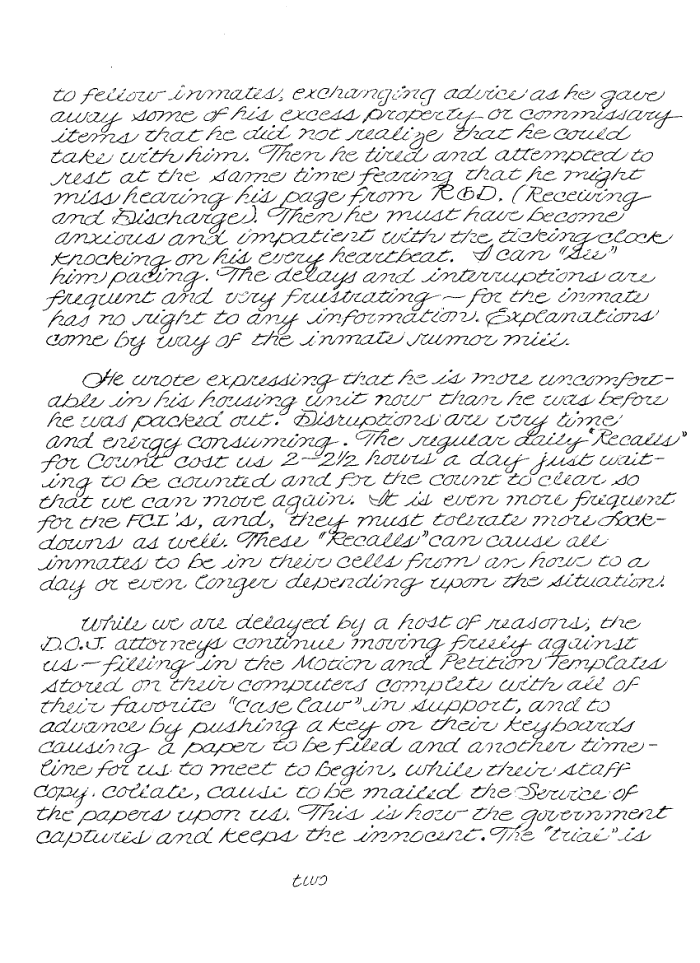 to fellow inmates, exchanging advice as he gave
away some of his excess property or commissary
items that he did not realize that he could
take with him. Then he tired and attempted to
rest at the same time fearing that he might
miss hearing his page from R&D. (Receiving
and Discharge). Then he must have become
anxious and impatient with the ticking clock
knocking on his every heartbeat. I can "see"
him pacing. The delays and interruptions are
frequent and very frustrating — for the inmate
has no right to any information. Explanations
come by way of the inmate rumor mill.
He wrote expressing that he is more uncomfort-
able in his housing unit now than he was before
he was packed out. Disruptions are very time
and energy consuming. The regular daily "Recalls"
for Count cost us 2-2½ hours a day just wait-
ing to be counted and for the count to clear so
that we can move again. It is even more frequent
for the FCI's, and, they must tolerate more Lock-
downs as well. These "Recalls" can cause all
inmates to be in their cells from an hour to a
day or even longer depending upon the situation.
While we are delayed by a host of reasons, the
D.O.J. attorneys continue moving freely against
us — filling in the Motion and Petition Templates
stored on their computers complete with all of
their favorite "case law" in support, and to
advance by pushing a key on their keyboards
causing a paper to be filed and another time-
line for us to meet to begin, while their staff
copy. collate, cause to be mailed the Service of
the papers upon us. This is how the government
captures and keeps the innocent. The "trial" is
two